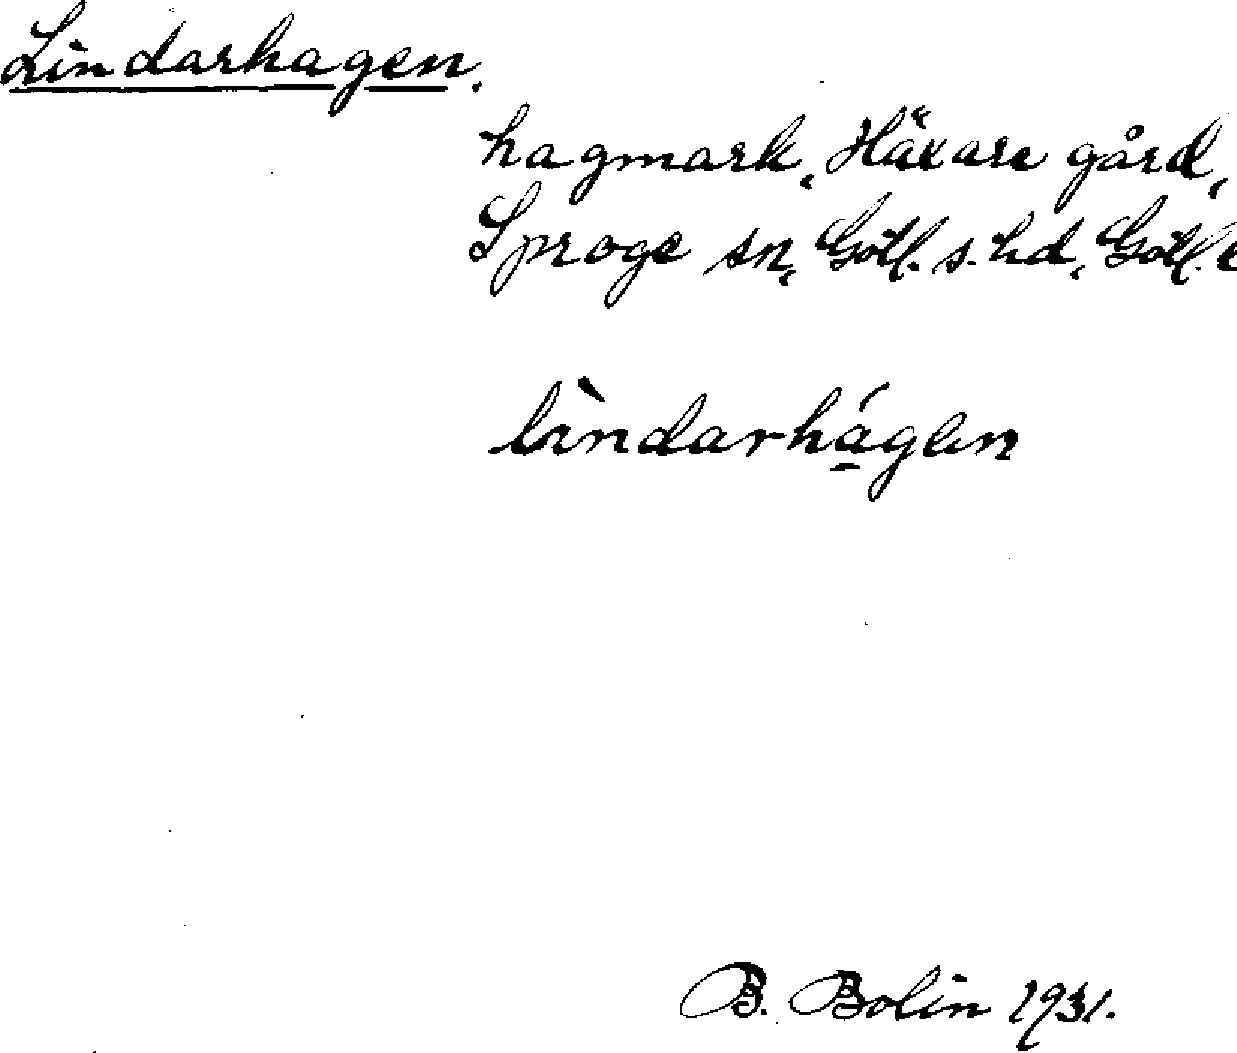 Lindarhagen.
hagmark, Häxare gård,
Sproge sn, Gotl. s. hd, Gotl.
lìndarhágen
B. Bolin 1931.